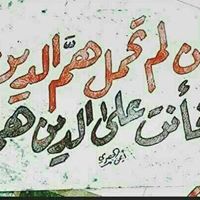 ن لم تحمل همَّ الدين
فأنت على الدين هم